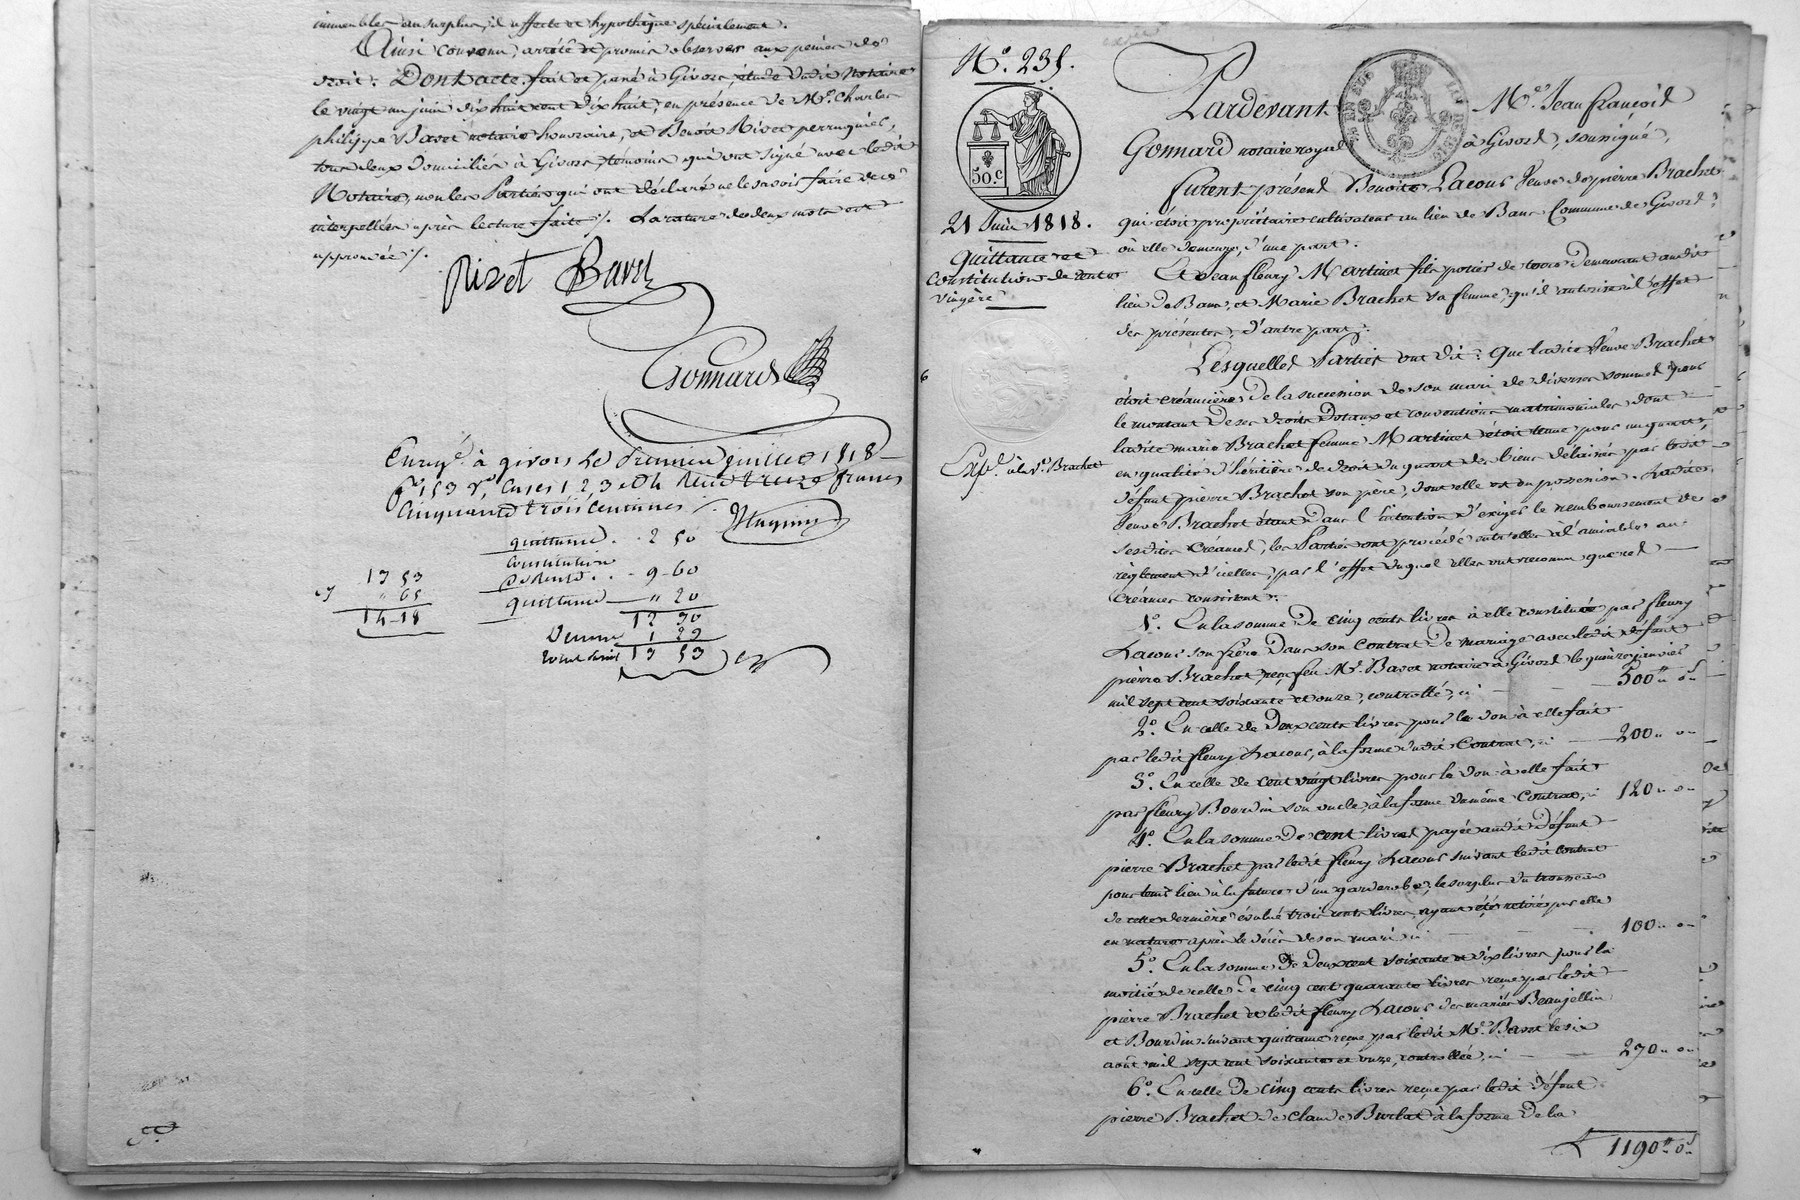 immeubles en surplus, il affecte et hypothèque spécialement.
Ainsi convenu, arrêté et promis observer aux peines de
droit : Dont acte, fait et passé à Givors, étude dudit Notaire
le vingt un juin dix huit cent dix huit, en présence de Mr. Charles
philippe Bavet notaire honoraire, et Benoit Rivet perruquier,
tous deux domiciliés à Givors, témoins qui ont signé avec ledit
Notaire, non les Parties qui ont déclaré ne le savoir faire de ce
interpellées après lecture faite ./. La rature de deux mots est
approuvée ./.
Rivet Bavet
Gonnard
Enregé. à givors le premier juillet 1818
fo. 153 Vo. Cases 1 2 3 et 4 Reçu treize francs
cinquante trois centimes
quittance . . 2 50
Constitution
de rente . . - 9 - 60
quittance — " 20
12 30
Dixième 1 23
13 53
13 53
" 65
14 - 18
No. 235.
50.c
21 Juin 1818.
Quittance et
Constitution de rente
viagère
Expd. à la Ve. Brachet
Pardevant Me. Jean François
Gonnard notaire royal à Givors, soussigné,
furent présens Benoite Lacour Veuve de pierre Brachet
qui étoit propriétaire cultivateur au lieu de Bans Commune de Givors,
où elle demeure, d'une part.
Et Jean fleury Martinet fils potier de terre demeurant audit
lieu de Bans, et Marie Brachet sa femme, qu'il autorise à l'effet
des présentes, d'autre part.
Lesquelles Parties ont dit : Que ladite Veuve Brachet
étoit créancière de la succession de son mari de diverses sommes pour
le montant de ses droits dotaux et conventions matrimoniales dont
ladite marie Brachet femme Martinet étoit tenue pour un quart
en qualité d'héritière de droit du quart des biens délaissés par ledit
défunt pierre Brachet son père, dont elle est en possession. Ladite
Veuve Brachet étant dans l'intention d'exiger le remboursement de
sesdites créances, les Parties ont procédé entr'elles à l'amiable au
règlement d'icelles, par l'effet duquel elles ont reconnu que ces
Créances consistent :
1o. En la somme de cinq cents livres à elle constituée par fleury
Lacour son frère dans son contrat de mariage avec ledit défunt
pierre Brachet, reçu feu Me. Bavet notaire à Givors le quinze janvier
mil sept cent soixante et onze, controllé, ci 500" o s
2o. En celle de deux cents livres pour le don à elle fait
par ledit fleury Lacour, à la forme dudit Contrat, ci 200" o
3o. En celle de cent vingt livres pour le don à elle fait
par fleury Bourdin son oncle, à la forme du même Contrat, ci 120" o
4o. En la somme de cent livres payée audit défunt
pierre Brachet par ledit fleury Lacour suivant ledit contrat
pour tenir lieu à la future d'une garderobe, le surplus du trousseau
de cette dernière évalué trois cents livres, ayant été retiré par elle
en nature après le décès de son mari ci 100" o
5o. En la somme de deux cent soixante et dix livres pour la
moitié de celle de cinq cent quarante livres reçue par ledit
pierre Brachet et ledit fleury Lacour des mariés Beaujellin
et Bourdin suivant quittance reçue par ledit Me. Bavet le six
août mil sept cent soixante et onze, controllée, ci 270" o
6o. En celle de cinq cents livres reçue par ledit défunt
pierre Brachet de claude Burlat à la forme de la
1190" o s